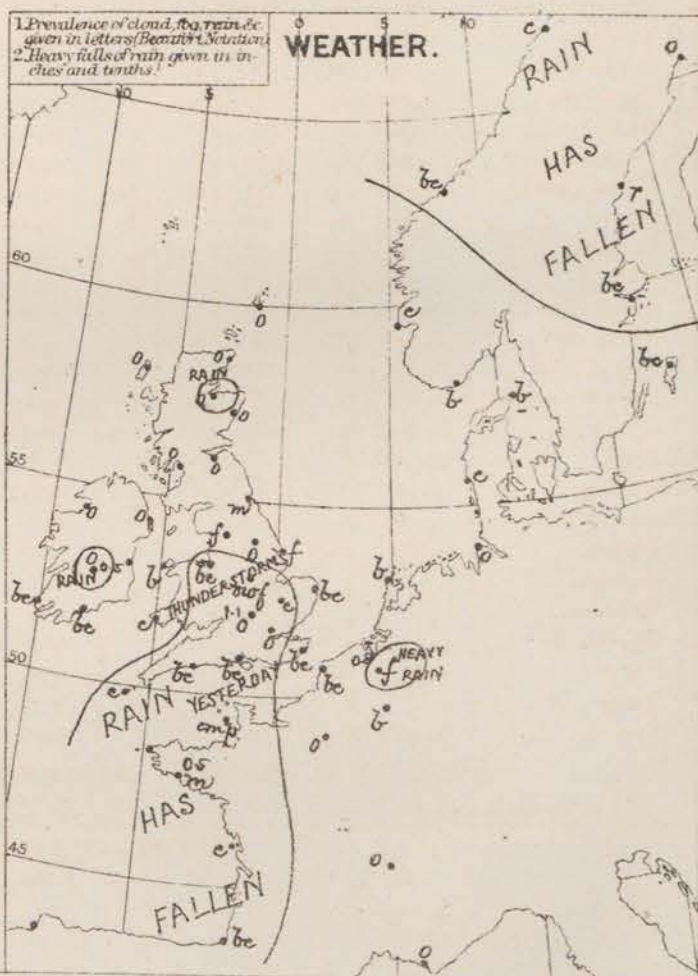 1. Prevalence of cloud, fog, rain &c
given in letters (Beaufort Notation)
2. Heavy falls of rain given in in-
ches and tenths.
WEATHER.
10 5 0 5 10 15
c
o
RAIN
HAS
FALLEN
bc
r
bc
60
o
c
o
o
RAIN
o
o
b
b
bc
55
o
o
c
m
o
o
f
o
f
o
RAIN
o
0.5
b
bc
b
bc
THUNDERSTORMS
bc
bc
c
1.1
o
c
o
bc
0.5
f
HEAVY
RAIN
50
bc
bc
bc
c
RAIN
YESTERDAY
b
cmp
o
0.5
m
HAS
c
45
o
FALLEN
bc
o